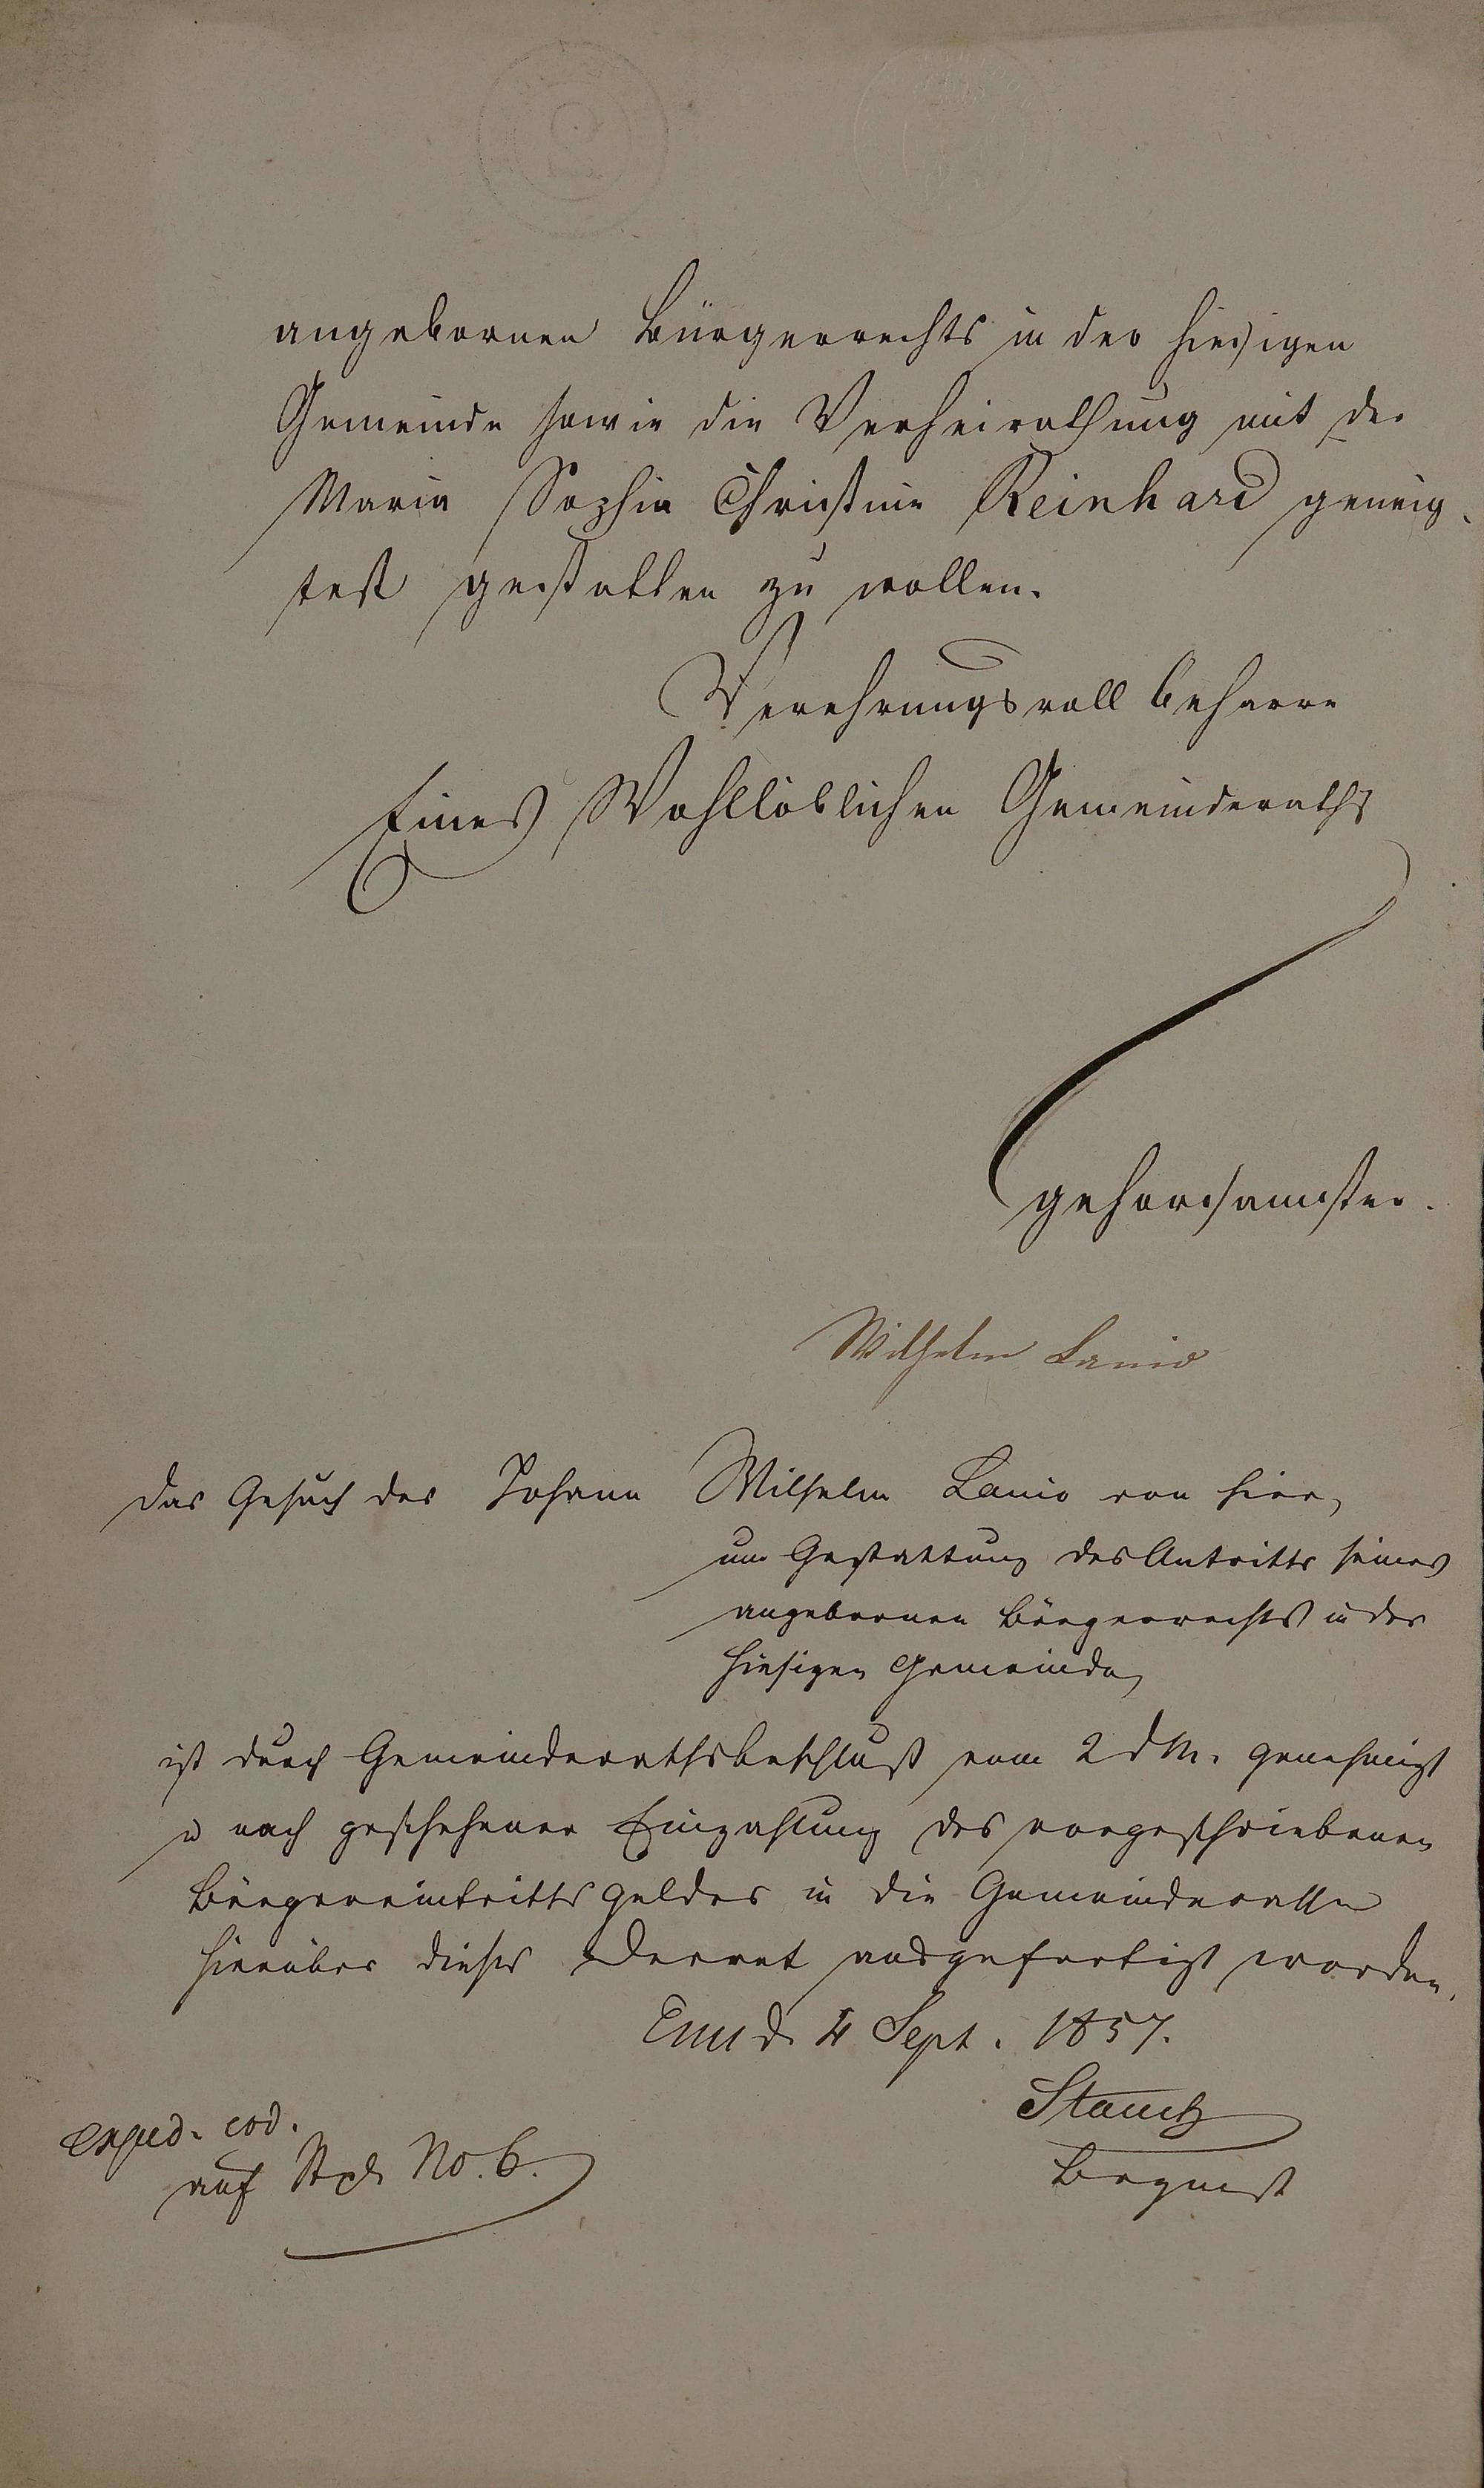 angebornen Bürgerrechts in der hiesigen
Gemeinde sowie die Verheirathung mit der
Maria Sophia Christine Reinhard geneig-
test gestatten zu wollen.
Verehrungsvoll beharre
Eines Wohllöblichen Gemeinderaths
gehorsamster.
Wilhelm Lanio
Das Gesuch des Johann Wilhelm Lanio von hier,
um Gestattung des Antritts seines
angebornen Bürgerrechts in der
hiesigen Gemeinde,
ist durch Gemeinderathsbeschluß vom 2 d M. genehmigt
u nach geschehener Einzahlung des vorgeschriebenen
Bürgereintrittsgeldes in die Gemeindecasse
hierüber dieses Decret ausgefertigt worden.
Ems d. 4 Sept. 1857.
exped. eod.
auf Stpl No. 6.
Brgmst